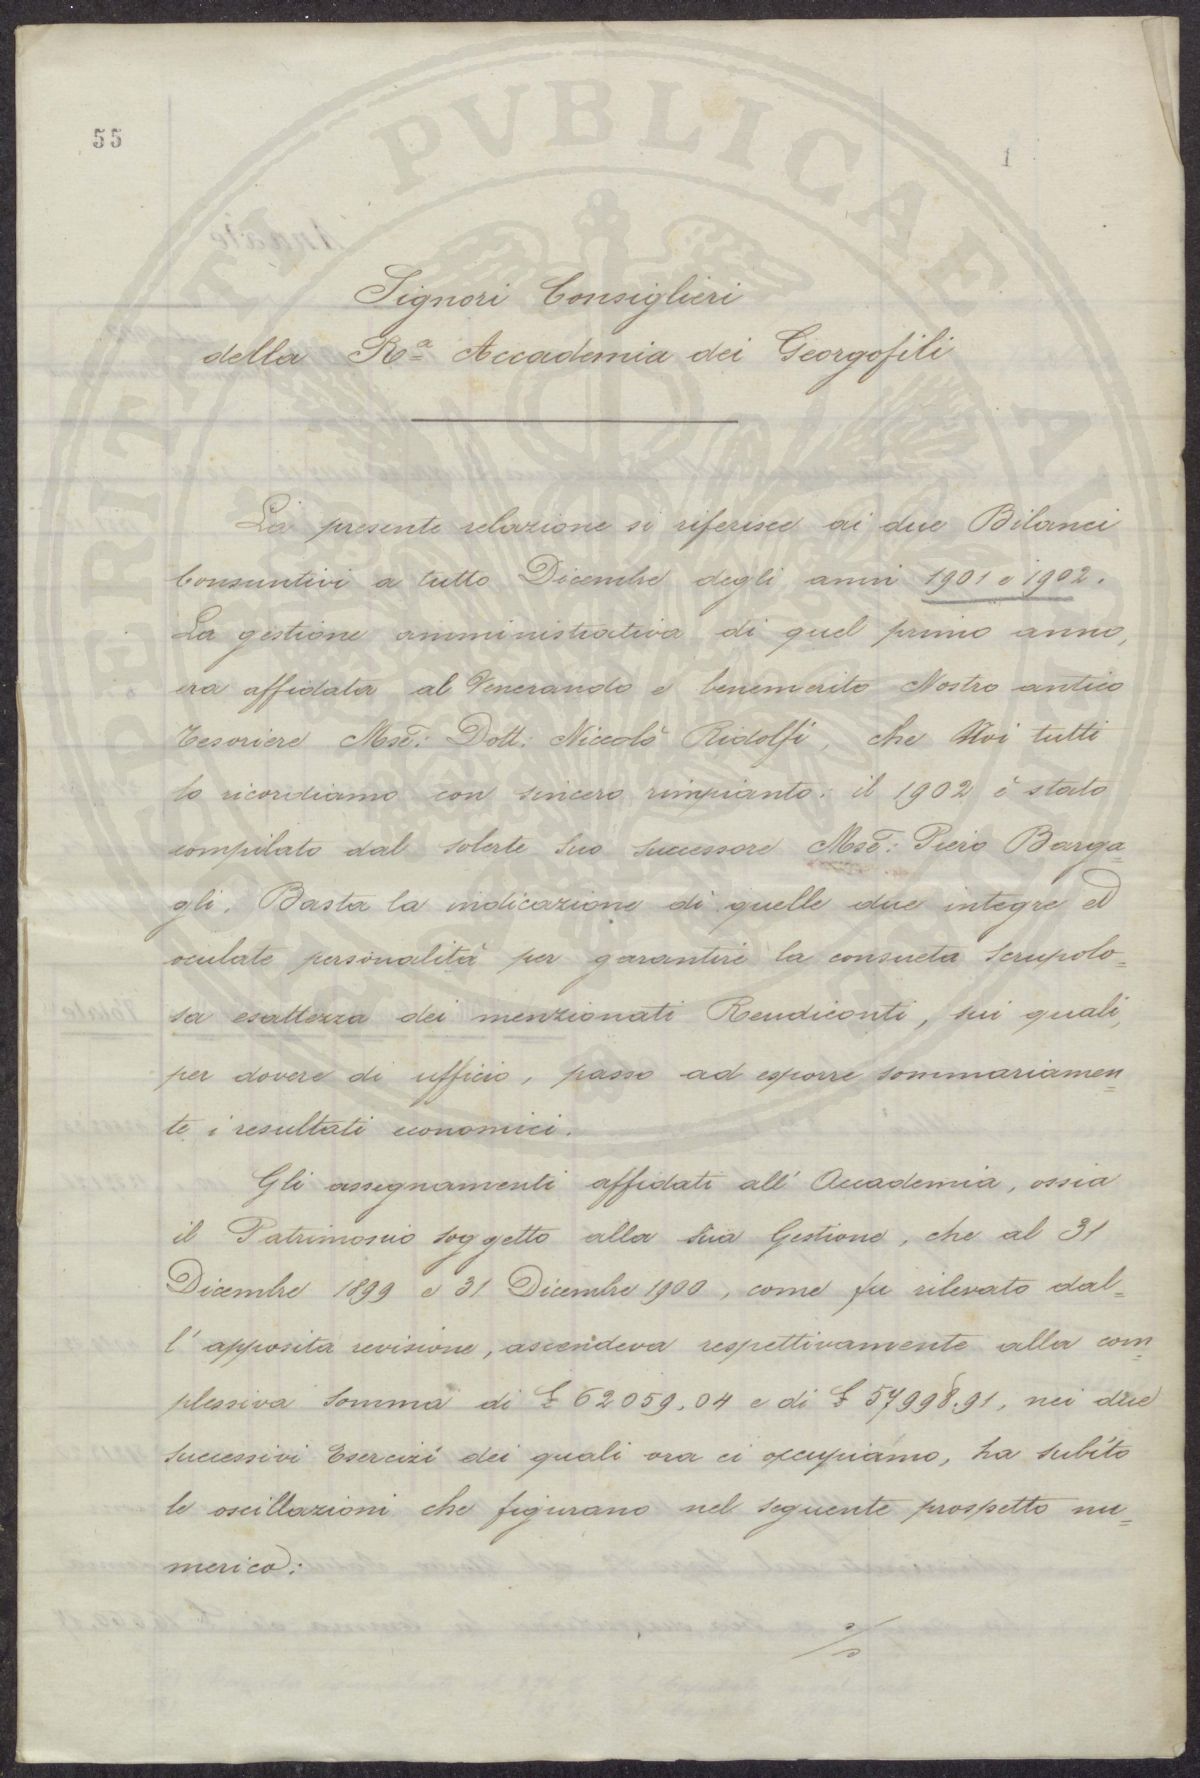 55
1
Signori Consiglieri
della Rª Accademia dei Georgofili
La presente relazione si riferisce ai due Bilanci
Consuntivi a tutto Dicembre degli anni 1901 e 1902.
La gestione amministrativa di quel primo anno,
era affidata al Venerando e benemerito Nostro antico
Tesoriere Mse: Dott: Niccolò Ridolfi, che Noi tutti
lo ricordiamo con sincero rimpianto: il 1902 è stato
compilato dal solerte suo successore Mse: Piero Barga=
gli. Basta la indicazione di quelle due integre ed
oculate personalità per garantire la consueta scrupolo=
sa esattezza dei menzionati Rendiconti, sui quali,
per dovere di ufficio, passo ad esporre sommariamen=
te i resultati economici.
Gli assegnamenti affidati all' Accademia, ossia
il Patrimonio soggetto alla sua Gestione, che al 31
Dicembre 1899 e 31 Dicembre 1900, come fu rilevato dal=
l' apposita revisione, ascendeva respettivamente alla com=
plessiva somma di £ 62059.04 e di £ 57998.91, nei due
successivi Esercizi dei quali ora ci occupiamo, ha subìto
le oscillazioni che figurano nel seguente prospetto nu=
merico:
PERITTI PVBLICAE